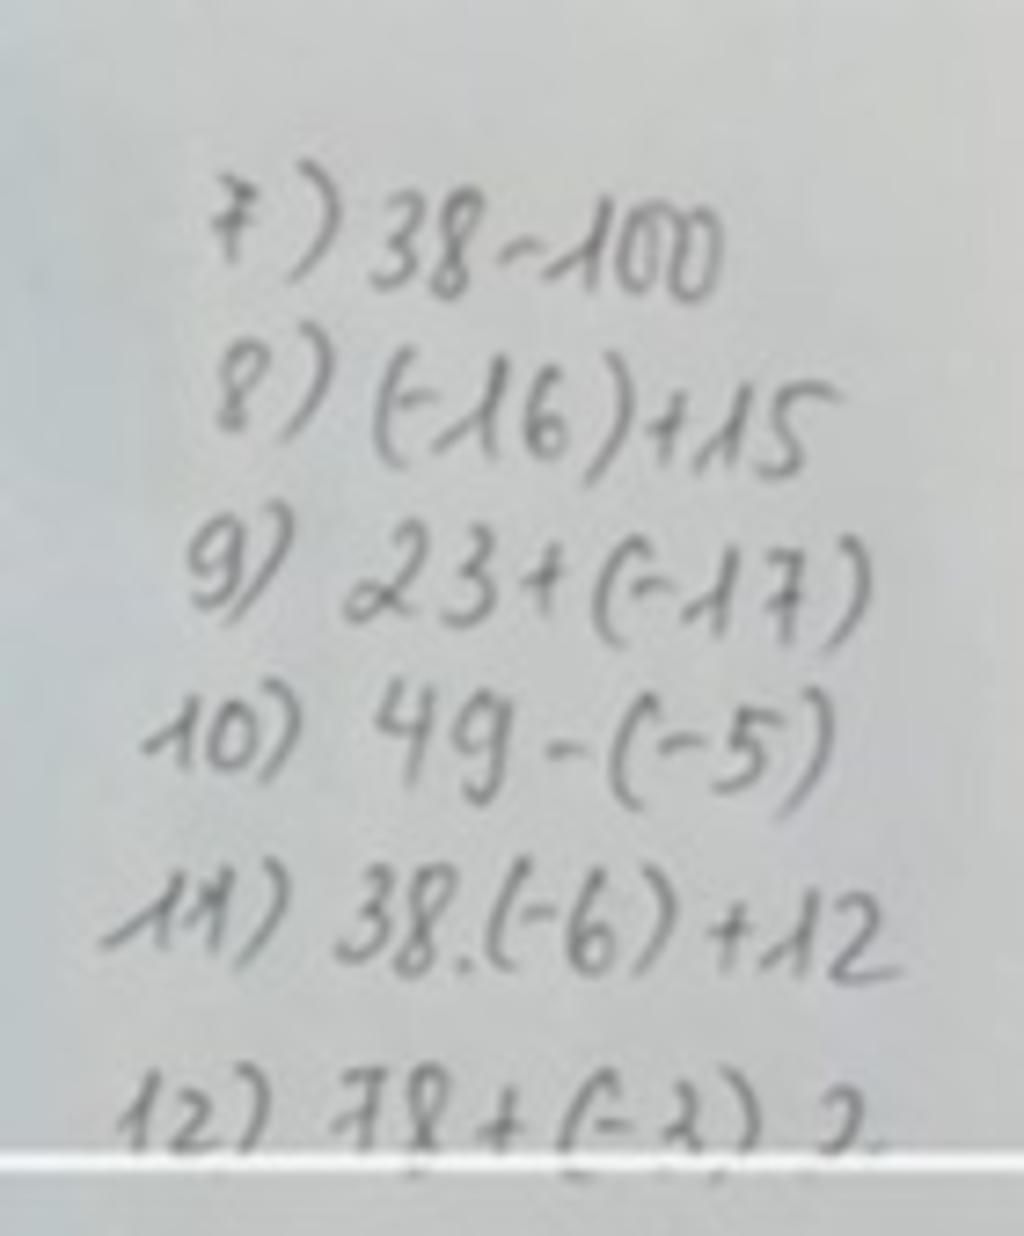 7) 38-100
8) (-16)+15
9) 23+(-17)
10) 49-(-5)
11) 38.(-6)+12
12) 78+(-2)